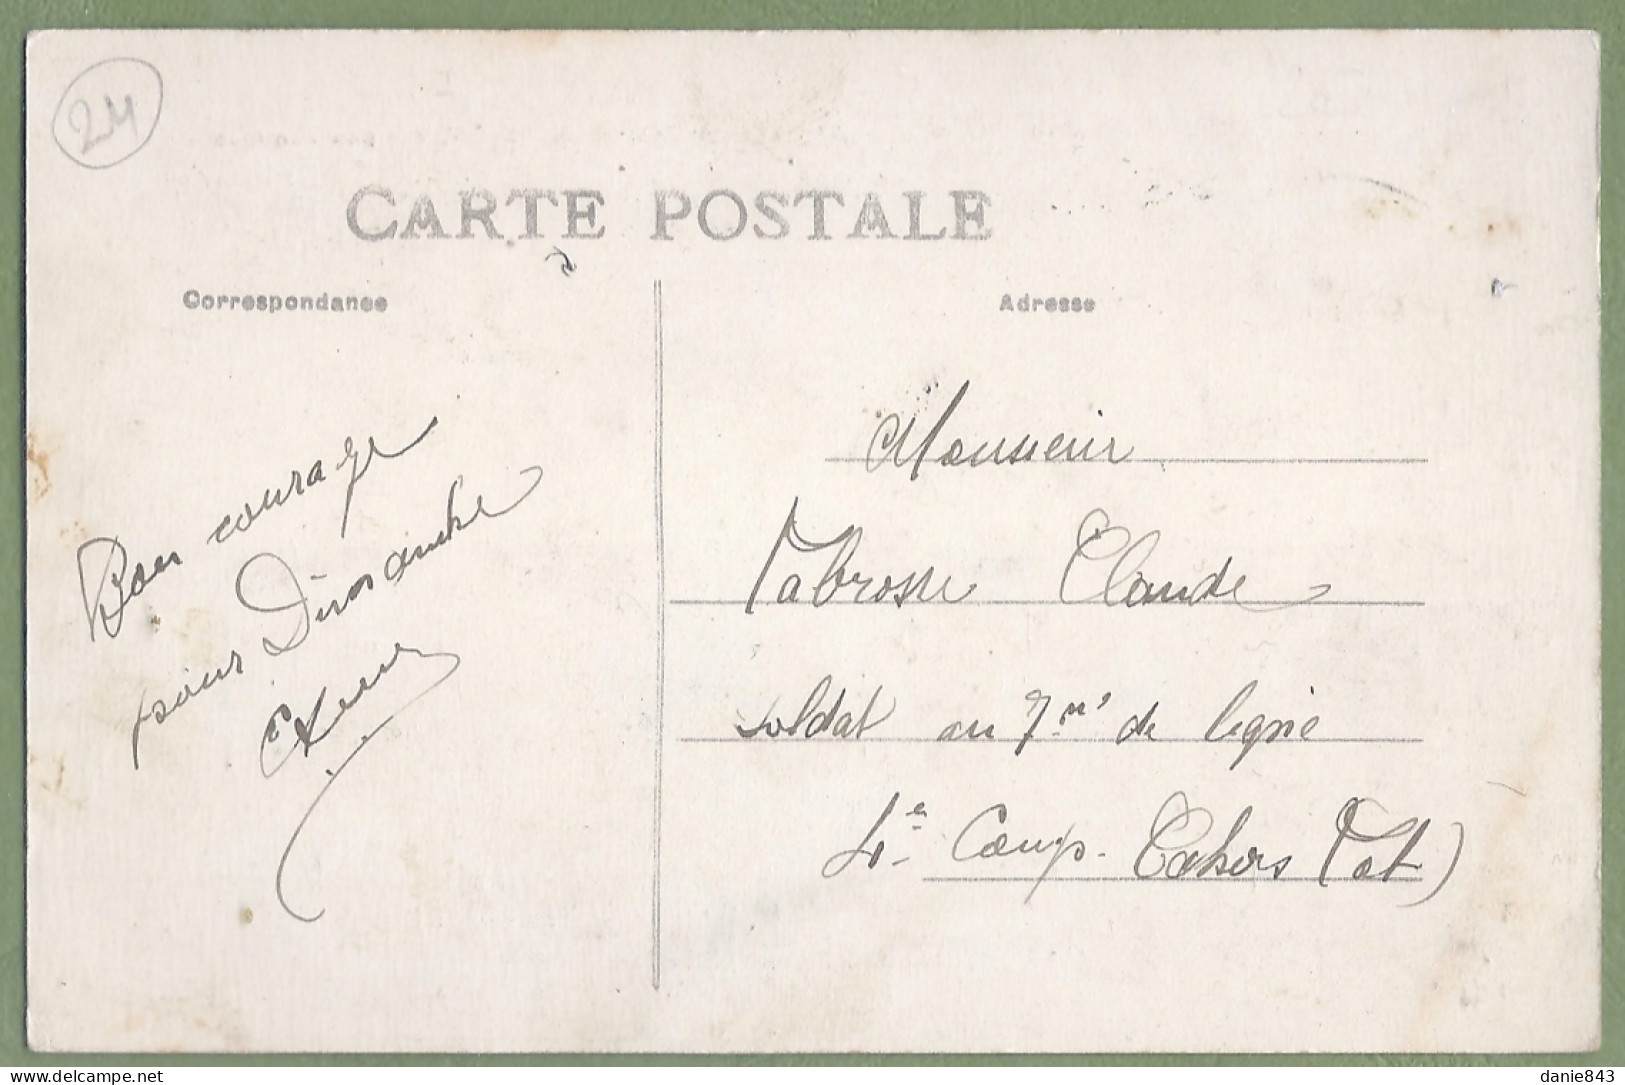 24
CARTE POSTALE
Correspondance
Adresse
Bon courage
pour Dimanche
Monsieur
Labrosse Claude
soldat au 7me de ligne
4e Comp. Cahors (Lot)
Delcampe.net
danie843